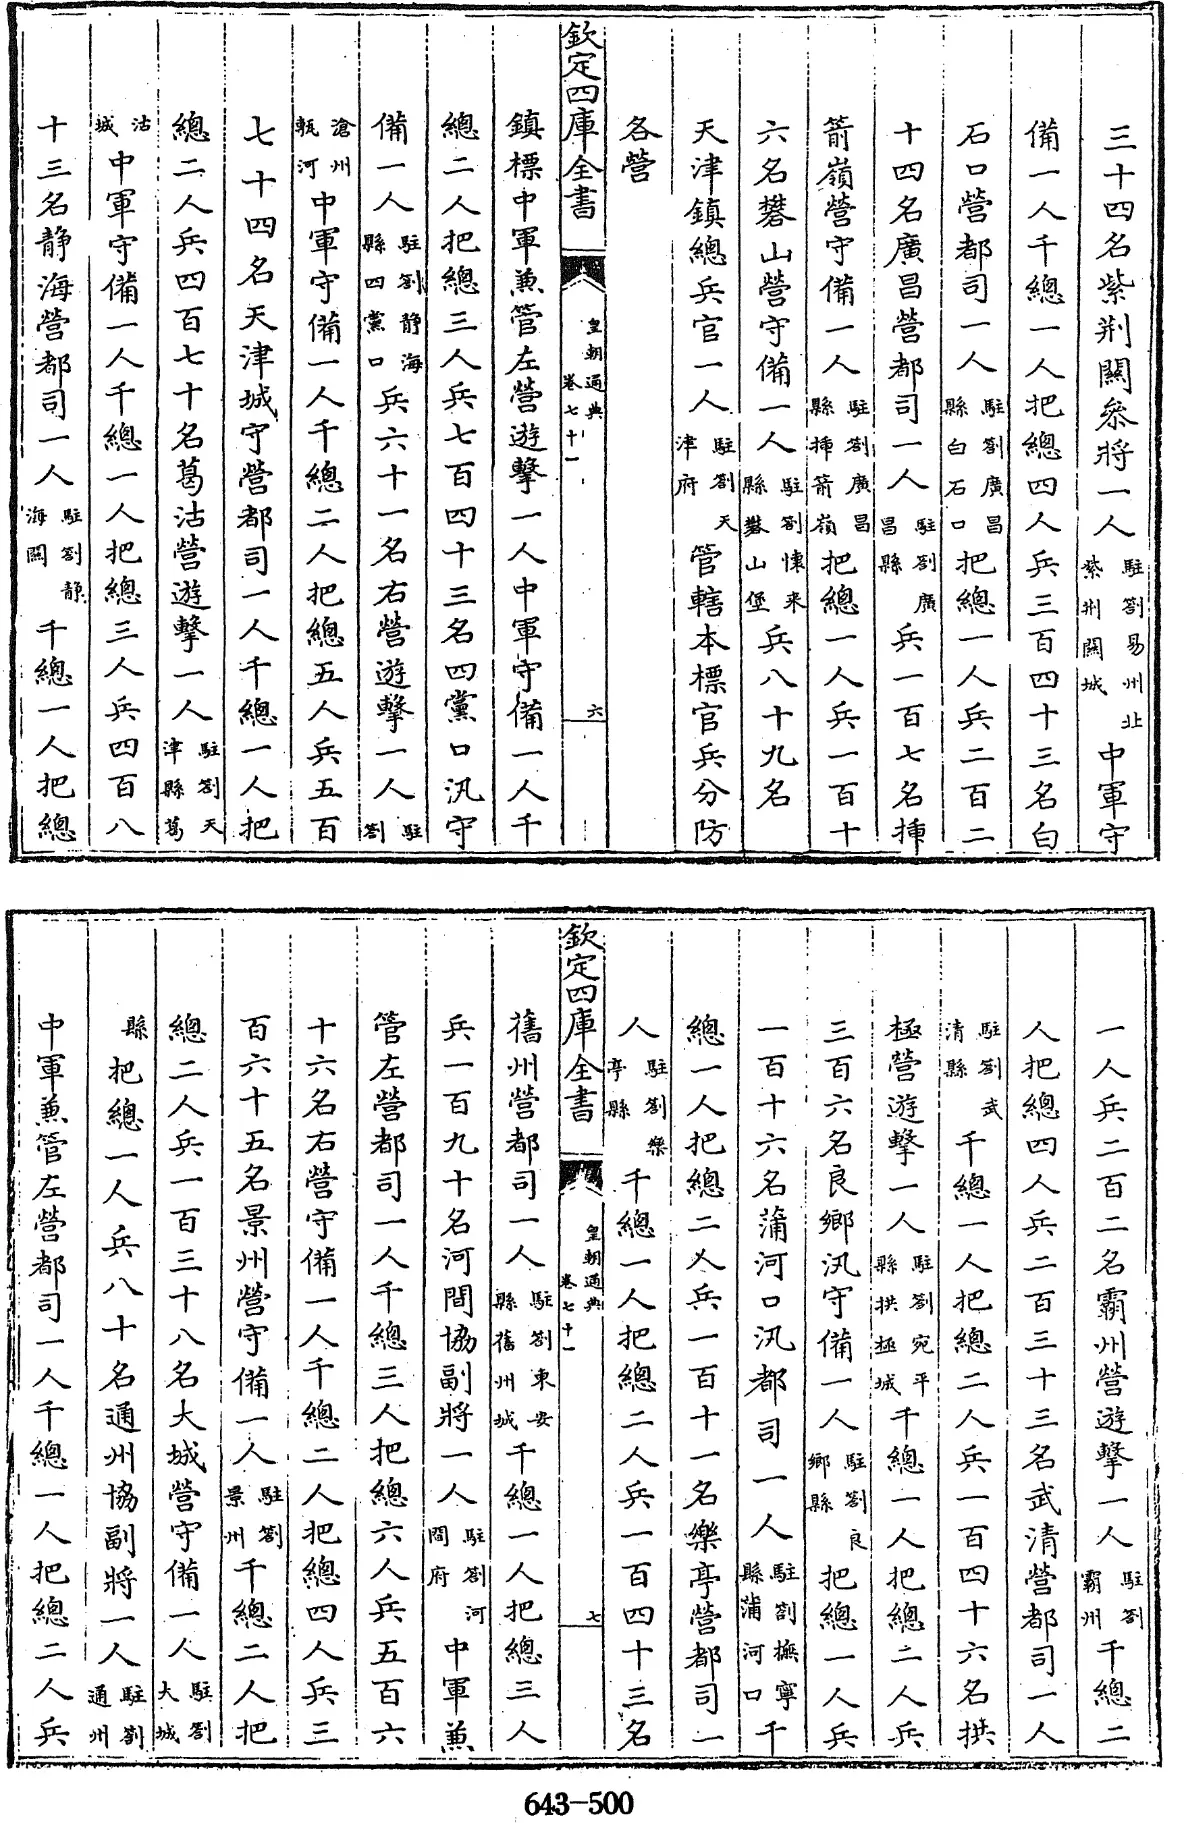 三十四名紫荆關叅將一人駐劄易州北紫荆關城中軍守
備一人千總一人把總四人兵三百四十三名白
石口營都司一人駐劄廣昌縣白石口把總一人兵二百二
十四名廣昌營都司一人駐劄廣昌縣兵一百七名揷
箭嶺營守備一人駐劄廣昌縣揷箭嶺把總一人兵一百十
六名礬山營守備一人駐劄懐来縣礬山堡兵八十九名
天津鎮總兵官一人駐劄天津府管轄本標官兵分防
各營
欽定四庫全書 皇朝通典 卷七十一 六
鎮標中軍兼管左營遊擊一人中軍守備一人千
總二人把總三人兵七百四十三名四黨口汛守
備一人駐劄静海縣四黨口兵六十一名右營遊擊一人駐劄
滄州瓴河中軍守備一人千總二人把總五人兵五百
七十四名天津城守營都司一人千總一人把
總二人兵四百七十名葛沽營遊擊一人駐劄天津縣葛
沽城中軍守備一人千總一人把總三人兵四百八
十三名静海營都司一人駐劄静海關千總一人把總
一人兵二百二名霸州營遊擊一人駐劄霸州千總二
人把總四人兵二百三十三名武清營都司一人
駐劄武清縣千總一人把總二人兵一百四十六名拱
極營遊擊一人駐劄宛平縣拱極城千總一人把總二人兵
三百六名良鄉汛守備一人駐劄良鄉縣把總一人兵
一百十六名蒲河口汛都司一人駐劄撫寧縣蒲河口千
總一人把總二人兵一百十一名樂亭營都司一
人駐劄樂亭縣千總一人把總二人兵一百四十三名
欽定四庫全書 皇朝通典 卷七十一 七
舊州營都司一人駐劄東安縣舊州城千總一人把總三人
兵一百九十名河間協副將一人駐劄河間府中軍兼
管左營都司一人千總三人把總六人兵五百六
十六名右營守備一人千總二人把總四人兵三
百六十五名景州營守備一人駐劄景州千總二人把
總二人兵一百三十八名大城營守備一人駐劄大城
縣把總一人兵八十名通州協副將一人駐劄通州
中軍兼管左營都司一人千總一人把總二人兵
643-500